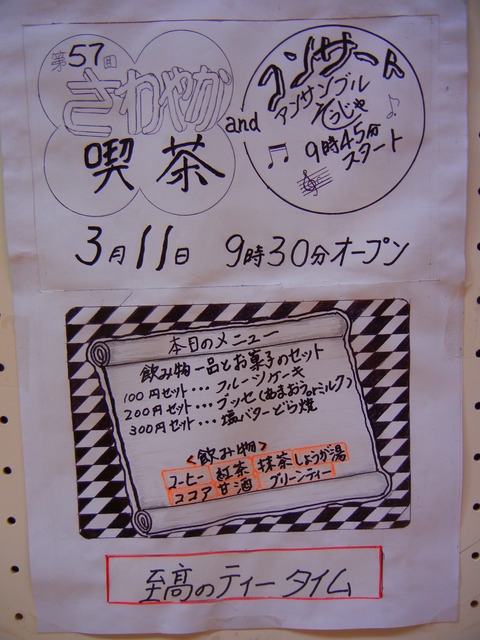 第57回
さわやか
喫茶
and
コンサート
アンサンブル
そうじゃ
9時45分
スタート
3月11日 9時30分オープン
本日のメニュー
飲み物一品とお菓子のセット
100円セット・・・フルーツケーキ
200円セット・・・ブッセ(あまおうorミルク)
300円セット・・・塩バターどら焼
<飲み物>
コーヒー 紅茶 抹茶 しょうが湯
ココア 甘酒 グリーンティー
至高のティータイム